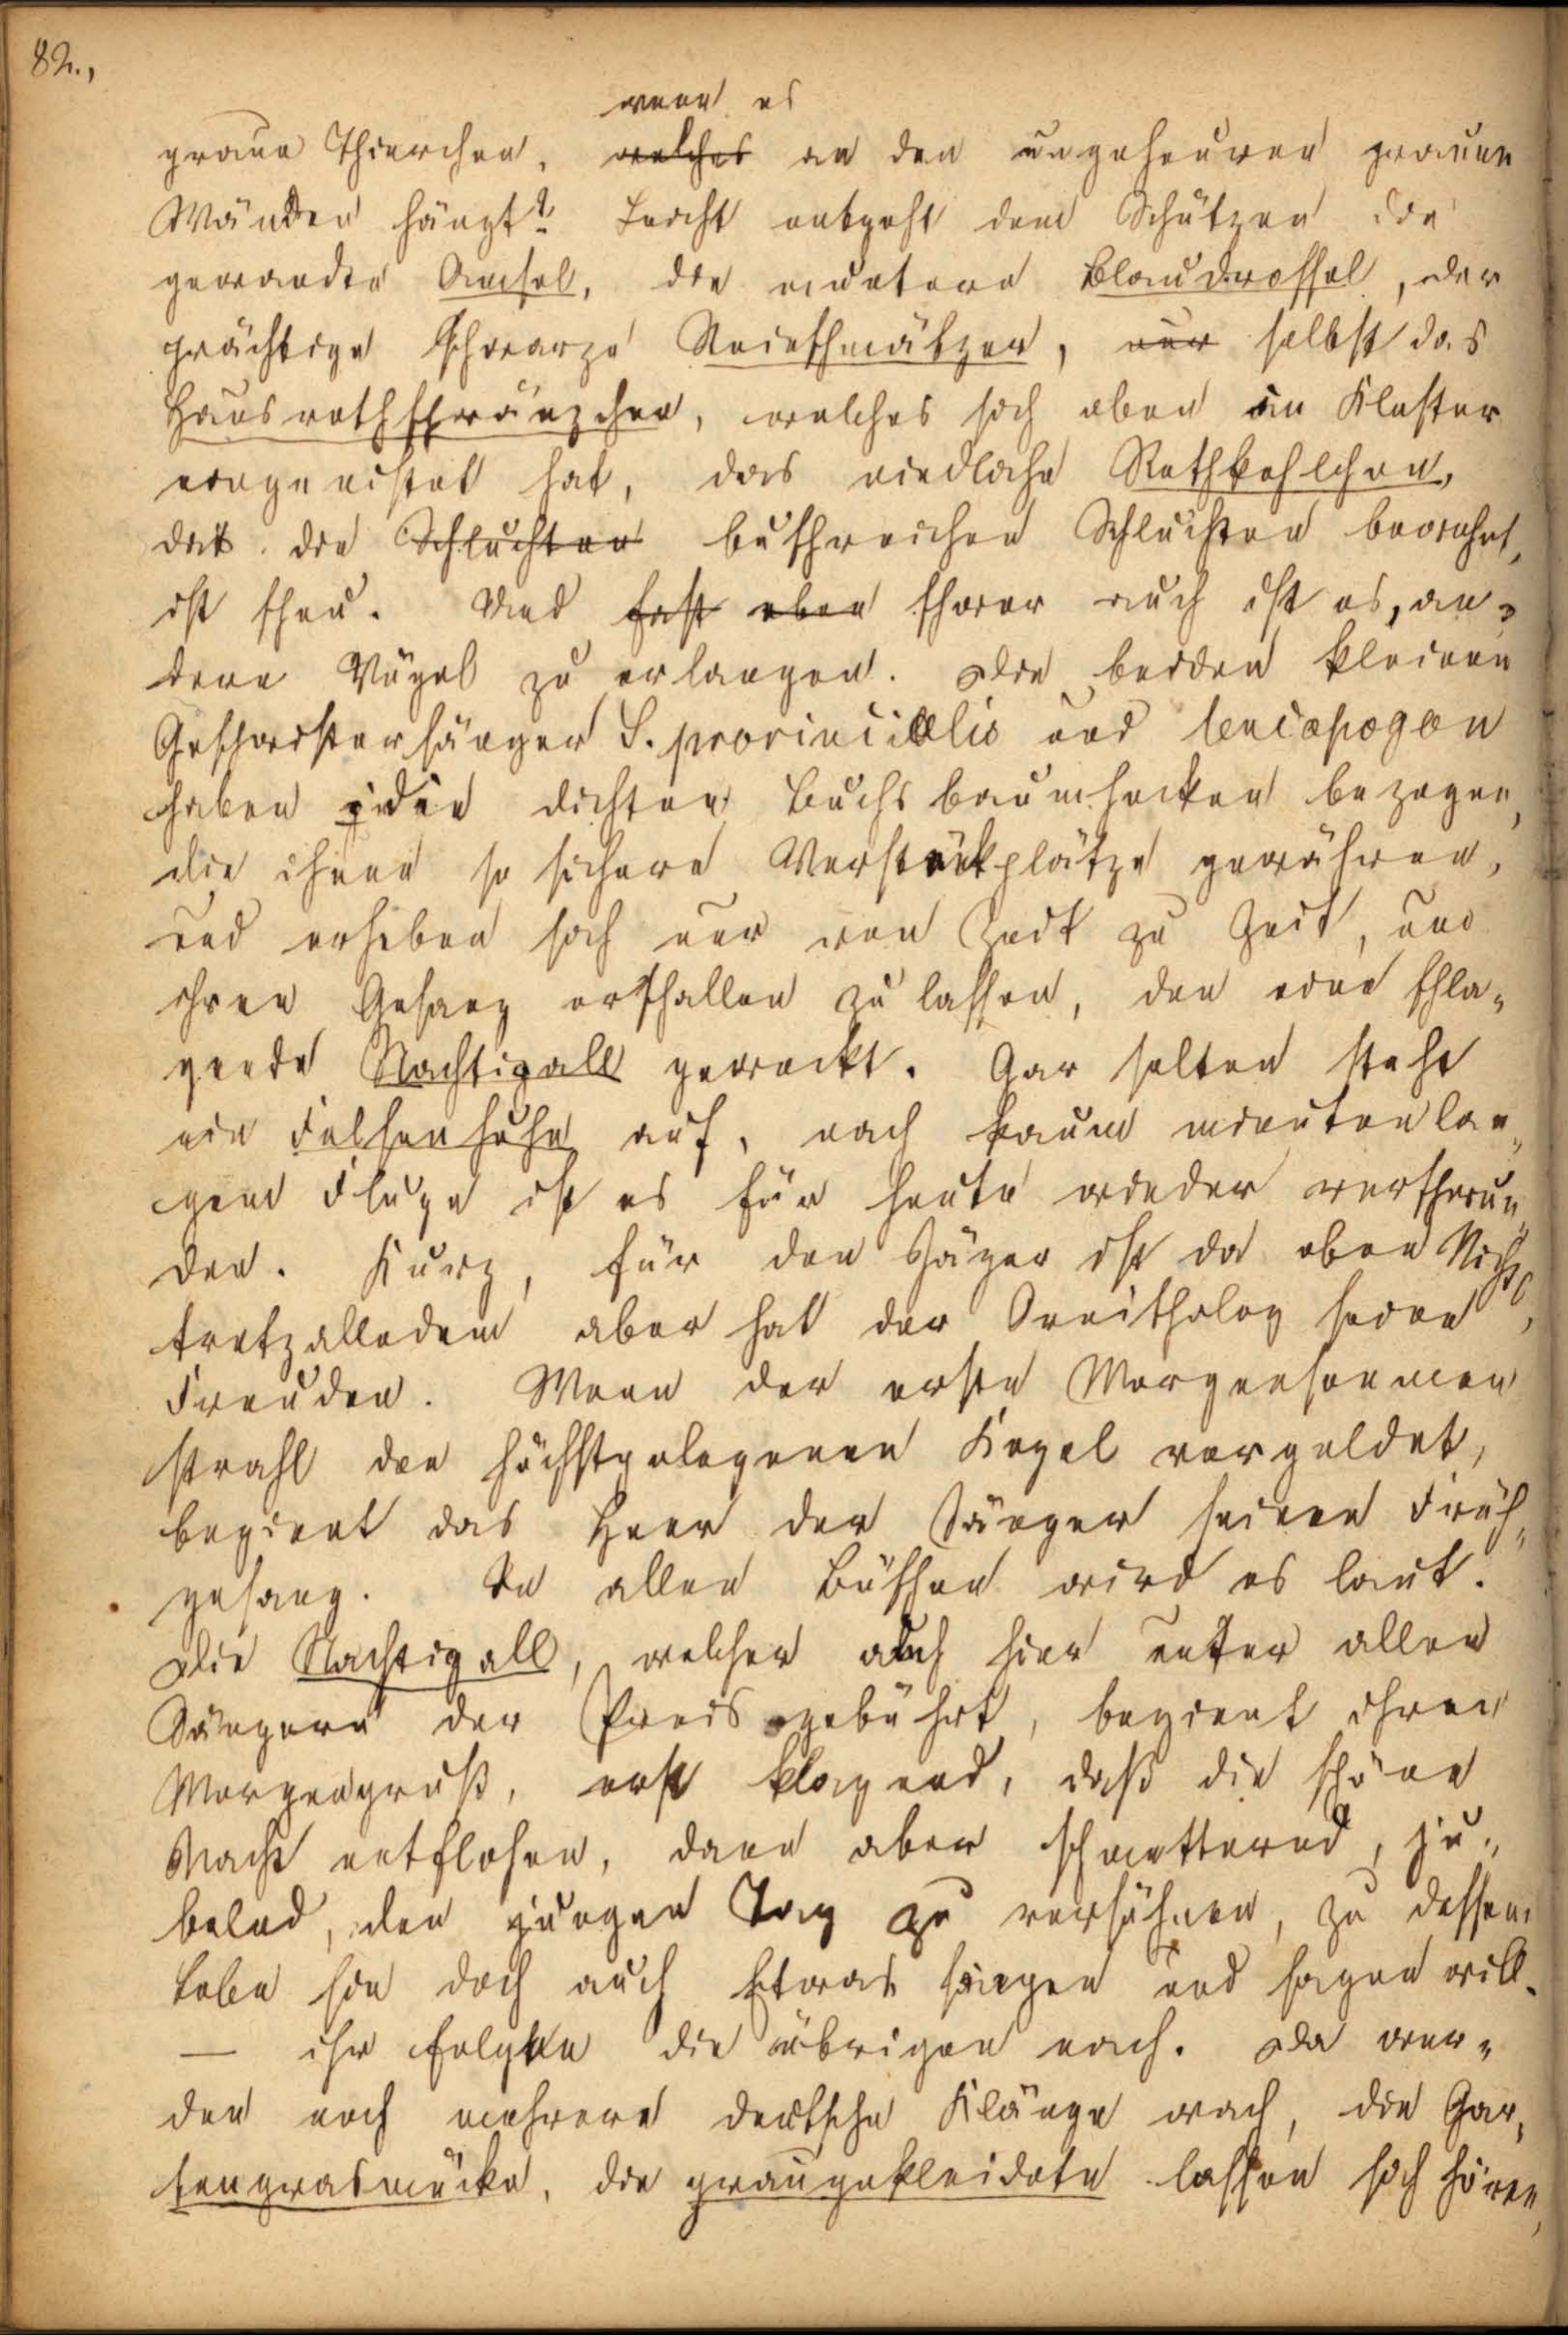 82.,
wenn es
graue Thierchen, welches an den ungeheuren grauen
Wänden hängt? Leicht entgeht dem Schützen die
gewandte Amsel, die muntere Blaudrossel, der
prächtige schwarze Steinschmätzer, nur selbst das
Hausrothschwänzchen, welches sich oben im Kloster
eingenistet hat, das niedliche Rothkehlchen,
das die Schluchten buschreichen Schluchten bewohnt,
ist scheu. Und fast eben schwer auch ist es, an-
dere Vögel zu erlangen. Die beiden kleinen
Geschwistersänger S. provincialis und leucopogon
haben die dichten Buchsbaumhecken bezogen,
die ihnen so sichere Versteckplätze gewähren,
und erheben sich nur von Zeit zu Zeit, um
ihren Gesang erschallen zu lassen, den eine schla-
gende Nachtigall geweckt. Gar selten steht
ein Felsenhuhn auf, nach kaum minutenlan-
gem Fluge ist es für heute wieder verschwun-
den. Kurz, für den Jäger ist da oben Nichts,
trotzalledem aber hat der Ornitholog seine
Freuden. Wenn der erste Morgensonnen
strahl den höchstgelegenen Kegel vergoldet,
beginnt das Heer der Sänger seinen Früh-
gesang. In allen Büschen wird es laut.
Die Nachtigall, welcher auch hier unter allen
Sängern der Preis gebührt, beginnt ihren
Morgengruß, erst klagend, daß die schöne
Nacht entflohen, dann aber schmetternd, ju-
belnd, den jungen Tag zu versühnen, zu dessem
Lobe sie doch auch Etwas singen und sagen will.
— ihr folgen die übrigen nach. Da wer-
den noch mehrere deutsche Klänge wach, die Gar-
tengrasmücke, die graugekleidete lassen sich hören,